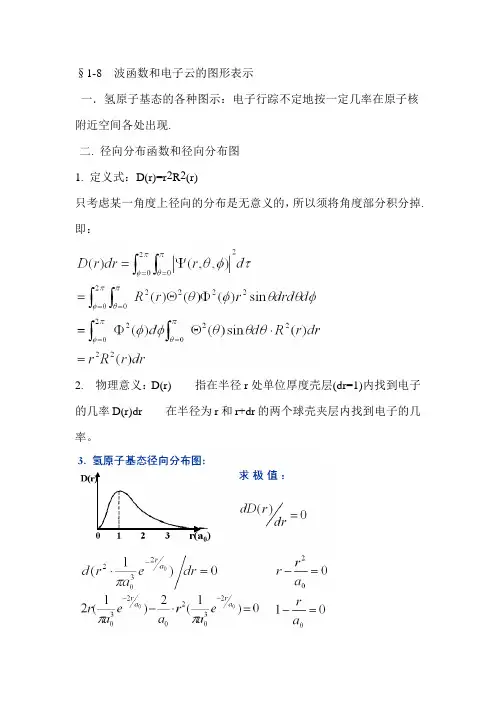 §1-8 波函数和电子云的图形表示
一．氢原子基态的各种图示：电子行踪不定地按一定几率在原子核
附近空间各处出现.
二. 径向分布函数和径向分布图
1. 定义式：D(r)=r²R²(r)
只考虑某一角度上径向的分布是无意义的，所以须将角度部分积分掉.
即：
D(r)dr = ∫_{ϕ=0}^{2π} ∫_{θ=0}^{π} |Ψ(r,θ,ϕ)|² dτ
= ∫_{ϕ=0}^{2π} ∫_{θ=0}^{π} R²(r)Θ²(θ)Φ²(ϕ)r² sinθdrdθdϕ
= ∫_{ϕ=0}^{2π} Φ²(ϕ)dϕ ∫_{θ=0}^{π} Θ²(θ)sinθdθ·R²(r)dr
= r²R²(r)dr
2. 物理意义：D(r) 指在半径 r 处单位厚度壳层(dr=1)内找到电子
的几率 D(r)dr 在半径为 r 和 r+dr 的两个球壳夹层内找到电子的几
率。
3. 氢原子基态径向分布图:
求极值：
D(r)
0 1 2 3 r(a₀)
dD(r)/dr = 0
d(r²·1/(πa₀³) e^{-2r/a₀})/dr = 0
r - r²/a₀ = 0
2r(1/(πa₀³) e^{-2r/a₀}) - 2/a₀·r²(1/(πa₀³) e^{-2r/a₀}) = 0
1 - r/a₀ = 0